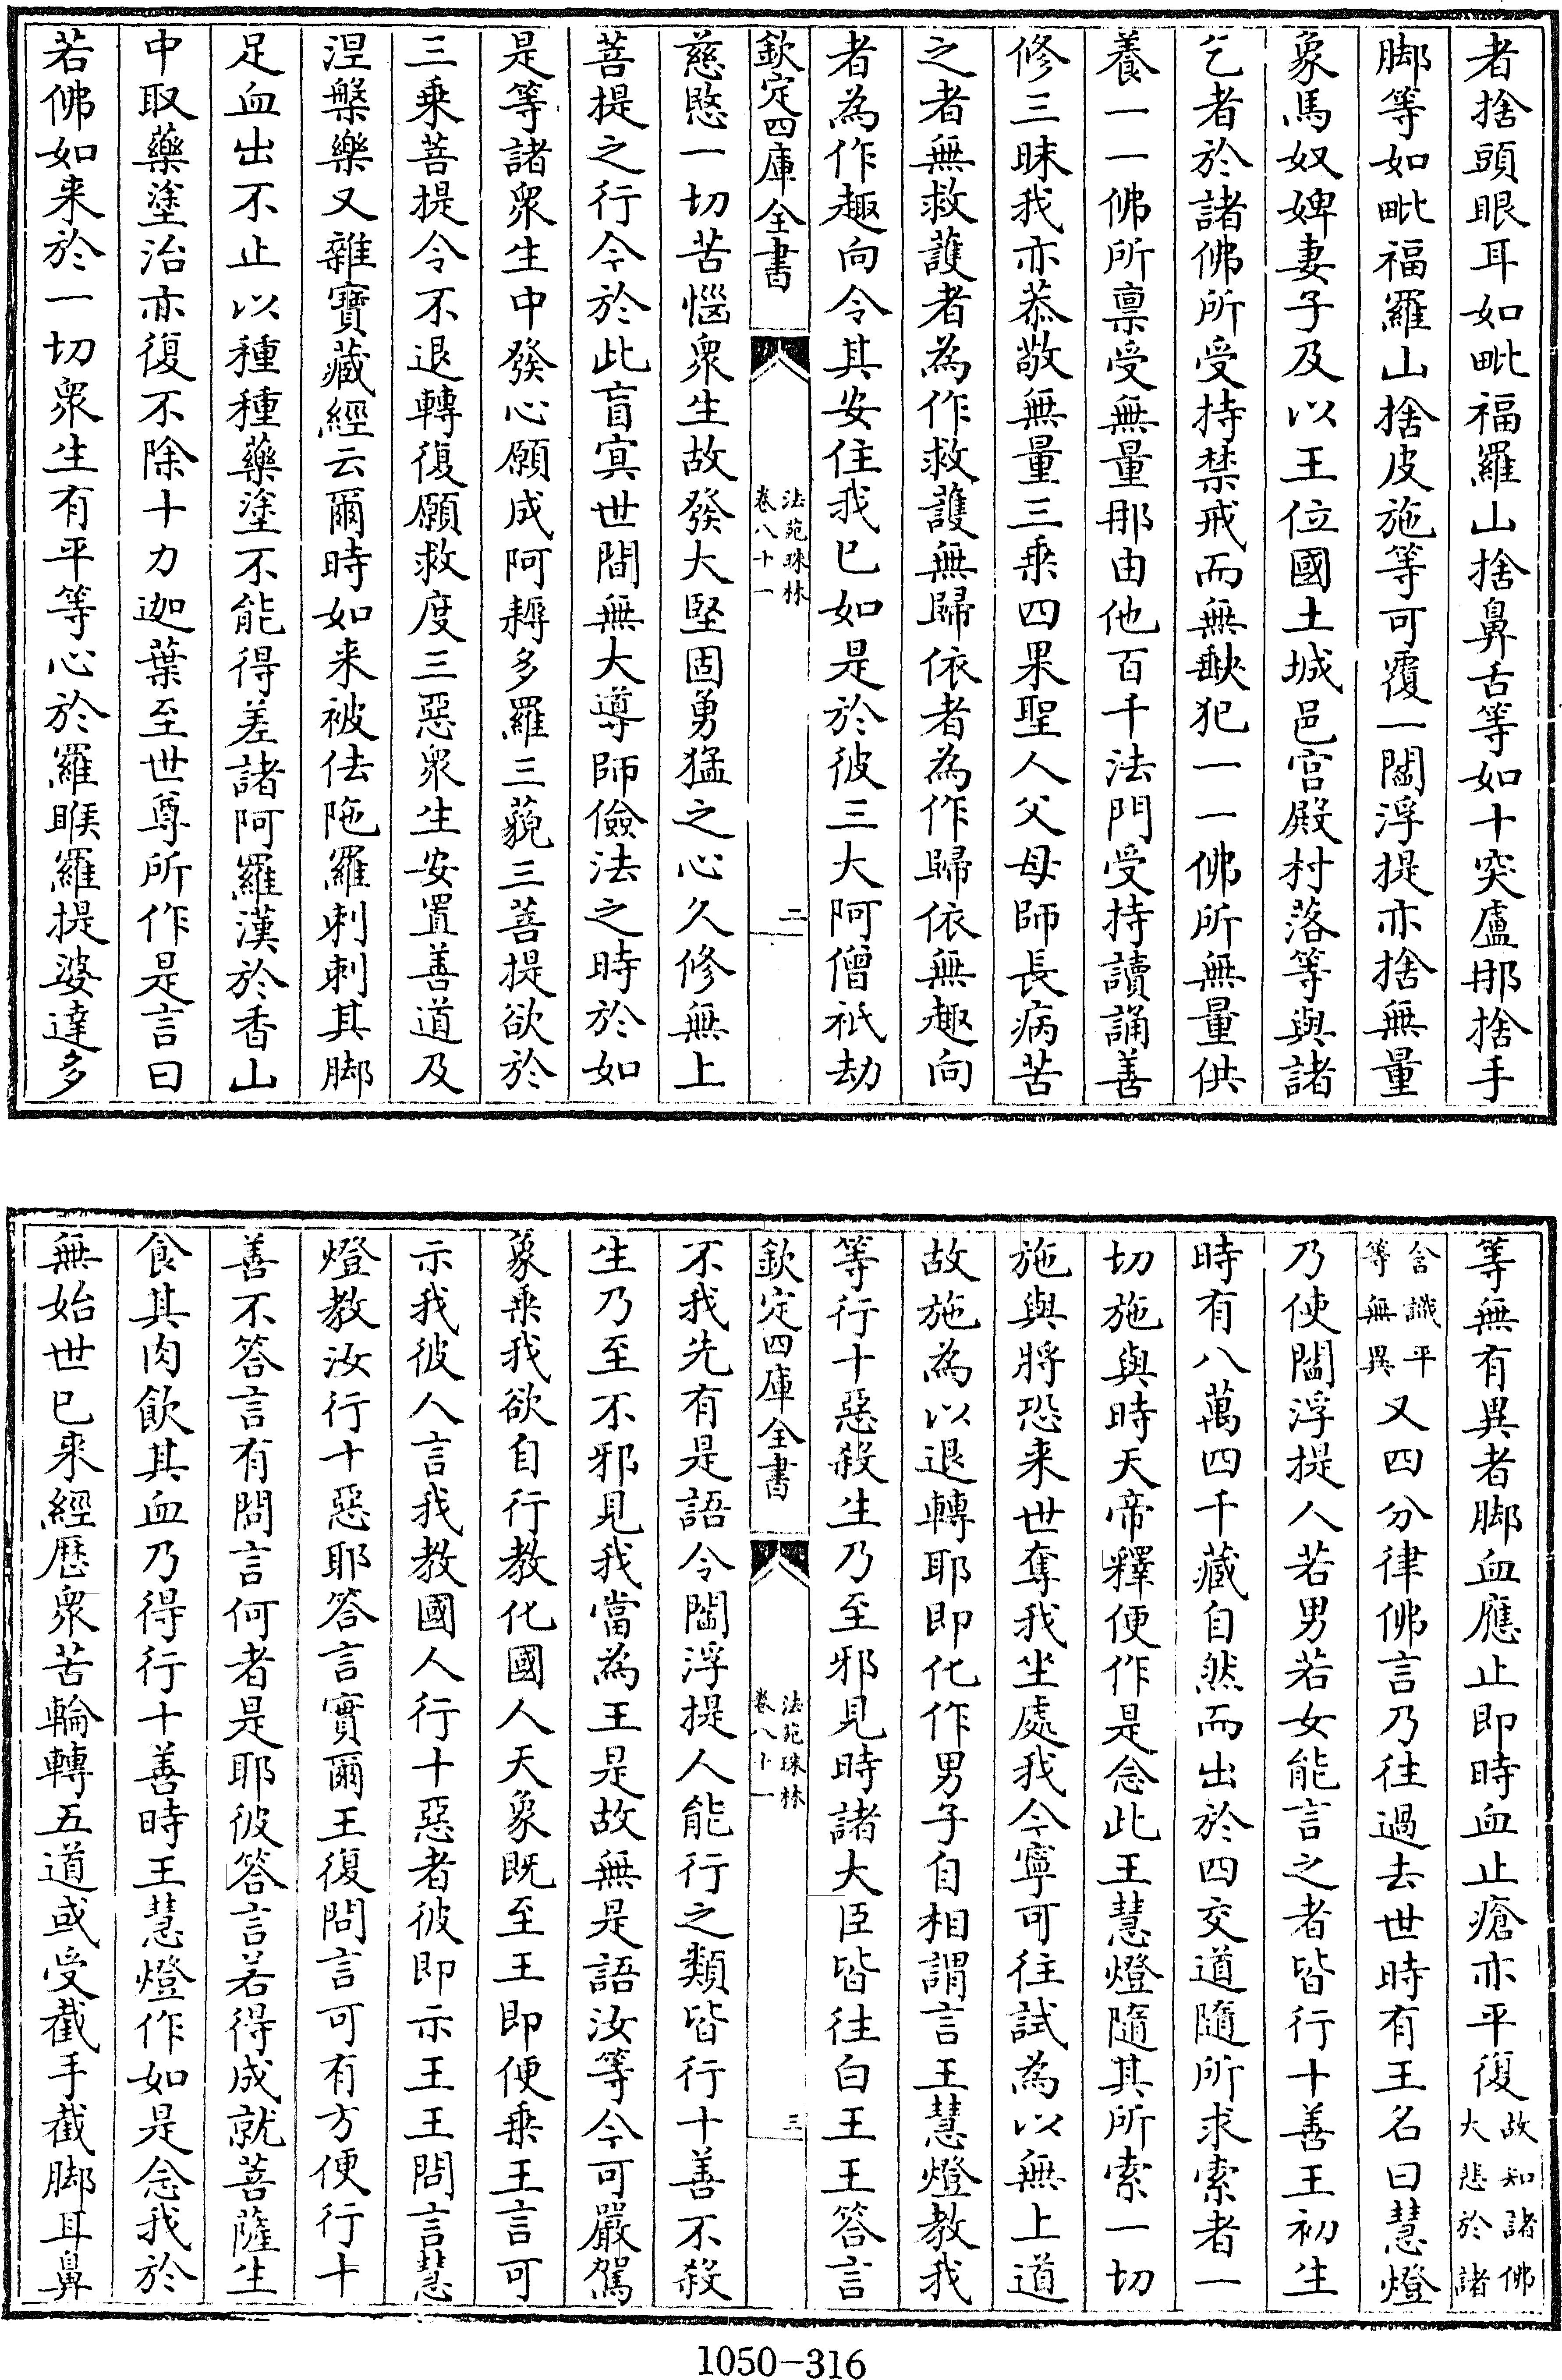 者捨頭眼耳如毗福羅山捨鼻舌等如十突盧那捨手
脚等如毗福羅山捨皮施等可覆一閻浮提亦捨無量
象馬奴婢妻子及以王位國土城邑宫殿村落等與諸
乞者於諸佛所受持禁戒而無缺犯一一佛所無量供
養一一佛所禀受無量那由他百千法門受持讀誦善
修三昧我亦恭敬無量三乘四果聖人父母師長病苦
之者無救護者為作救護無歸依者為作歸依無趣向
者為作趣向令其安住我已如是於彼三大阿僧祇劫
欽定四庫全書
法苑珠林
卷八十一
二
慈愍一切苦惱衆生故發大堅固勇猛之心久修無上
菩提之行今於此盲冥世間無大導師儉法之時於如
是等諸衆生中發心願成阿耨多羅三藐三菩提欲於
三乘菩提令不退轉復願救度三惡衆生安置善道及
涅槃樂又雜寶藏經云爾時如来被佉陁羅刺刺其脚
足血出不止以種種藥塗不能得差諸阿羅漢於香山
中取藥塗治亦復不除十力迦葉至世尊所作是言曰
若佛如来於一切衆生有平等心於羅睺羅提婆達多
等無有異者脚血應止即時血止瘡亦平復故知諸佛大悲於諸
含識平等無異又四分律佛言乃往過去世時有王名曰慧燈
乃使閻浮提人若男若女能言之者皆行十善王初生
時有八萬四千藏自然而出於四交道隨所求索者一
切施與時天帝釋便作是念此王慧燈隨其所索一切
施與將恐来世奪我坐處我今寧可往試為以無上道
故施為以退轉耶即化作男子自相謂言王慧燈教我
等行十惡殺生乃至邪見時諸大臣皆往白王王答言
欽定四庫全書
法苑珠林
卷八十一
三
不我先有是語令閻浮提人能行之類皆行十善不殺
生乃至不邪見我當為王是故無是語汝等今可嚴駕
象乘我欲自行教化國人天象既至王即便乘王言可
示我彼人言我教國人行十惡者彼即示王王問言慧
燈教汝行十惡耶答言實爾王復問言可有方便行十
善不答言有問言何者是耶彼答言若得成就菩薩生
食其肉飲其血乃得行十善時王慧燈作如是念我於
無始世已来經歷衆苦輪轉五道或受截手截脚耳鼻
1050-316